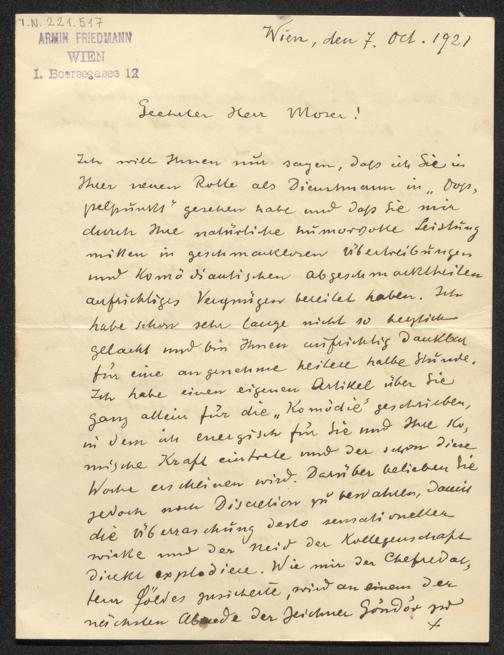 I.N. 221.517
ARMIN FRIEDMANN
WIEN
I. Boersegasse 12
Wien, den 7. Oct. 1921
Geehrter Herr Moser!
Ich will Ihnen nur sagen, daß ich Sie in
Ihrer neuen Rolle als Dienstmann in „Dop-
pelpunkt" gesehen habe und daß Sie mir
durch Ihre natürliche humorvolle Leistung
mitten in geschmacklosen Übertreibungen
und Komödiantischen Abgeschmacktheiten
aufrichtiges Vergnügen bereitet haben. Ich
habe schon sehr lange nicht so herzlich
gelacht und bin Ihnen aufrichtig dankbar
für eine angenehme heitere halbe Stunde.
Ich habe einen eigenen Artikel über Sie
ganz allein für die „Komödie" geschrieben,
in dem ich energisch für Sie und Ihre ko-
mische Kraft eintrete und der schon diese
Woche erscheinen wird. Darüber belieben Sie
jedoch noch Discretion zu bewahren, damit
die Überraschung desto sensationeller
wirke und der Neid der Kollegenschaft
direkt explodiere. Wie mir der Chefredac-
teur Földes zusicherte, wird an einem der
nächsten Abende der Zeichner Göndör zu